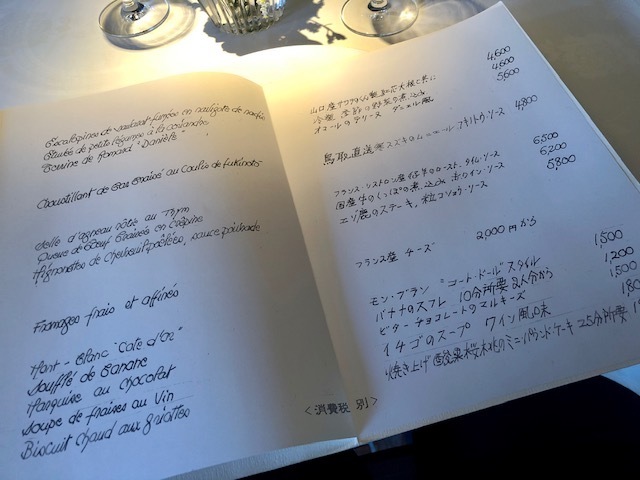 Escalopines de saumure fumées en navigate de
Étuvée de petits légumes à la coriandre
Terrine de Homard "Danièle"
Croustillant de Bar Braisé au Coulis de fukinoto
Selle d'agneau rôtie au Thym
Queue de Bœuf Braisée en Crépine
Mignonettes de Chevreuil poêlées, sauce poivrade
Fromages frais et affinés
Mont-Blanc "Cote d'Or"
Soufflé de Banane
Marquise au chocolat
Soupe de fraises au Vin
Biscuit chaud aux griottes
4,600
冷製 季節の野菜の煮込み 4,600
オマールのテリーヌ ダニエル風 5,600
鳥取直送 スズキの フキノトウ・ソース 4,800
フランス・シストロン産仔羊のロースト・タイム・ソース 6,500
国産牛のしっぽの煮込み 赤ワイン・ソース 6,200
エゾ鹿のステーキ、粒コショウ・ソース 5,800
フランス産 チーズ 2,000円から
モン・ブラン "コート・ドール" スタイル 1,500
バナナのスフレ 10分所要 2人から 1,200
ビター・チョコレートのマルキーズ 1,500
イチゴのスープ ワイン風味
焼き上げ のミニパウンドケーキ 25分所要
<消費税 別>